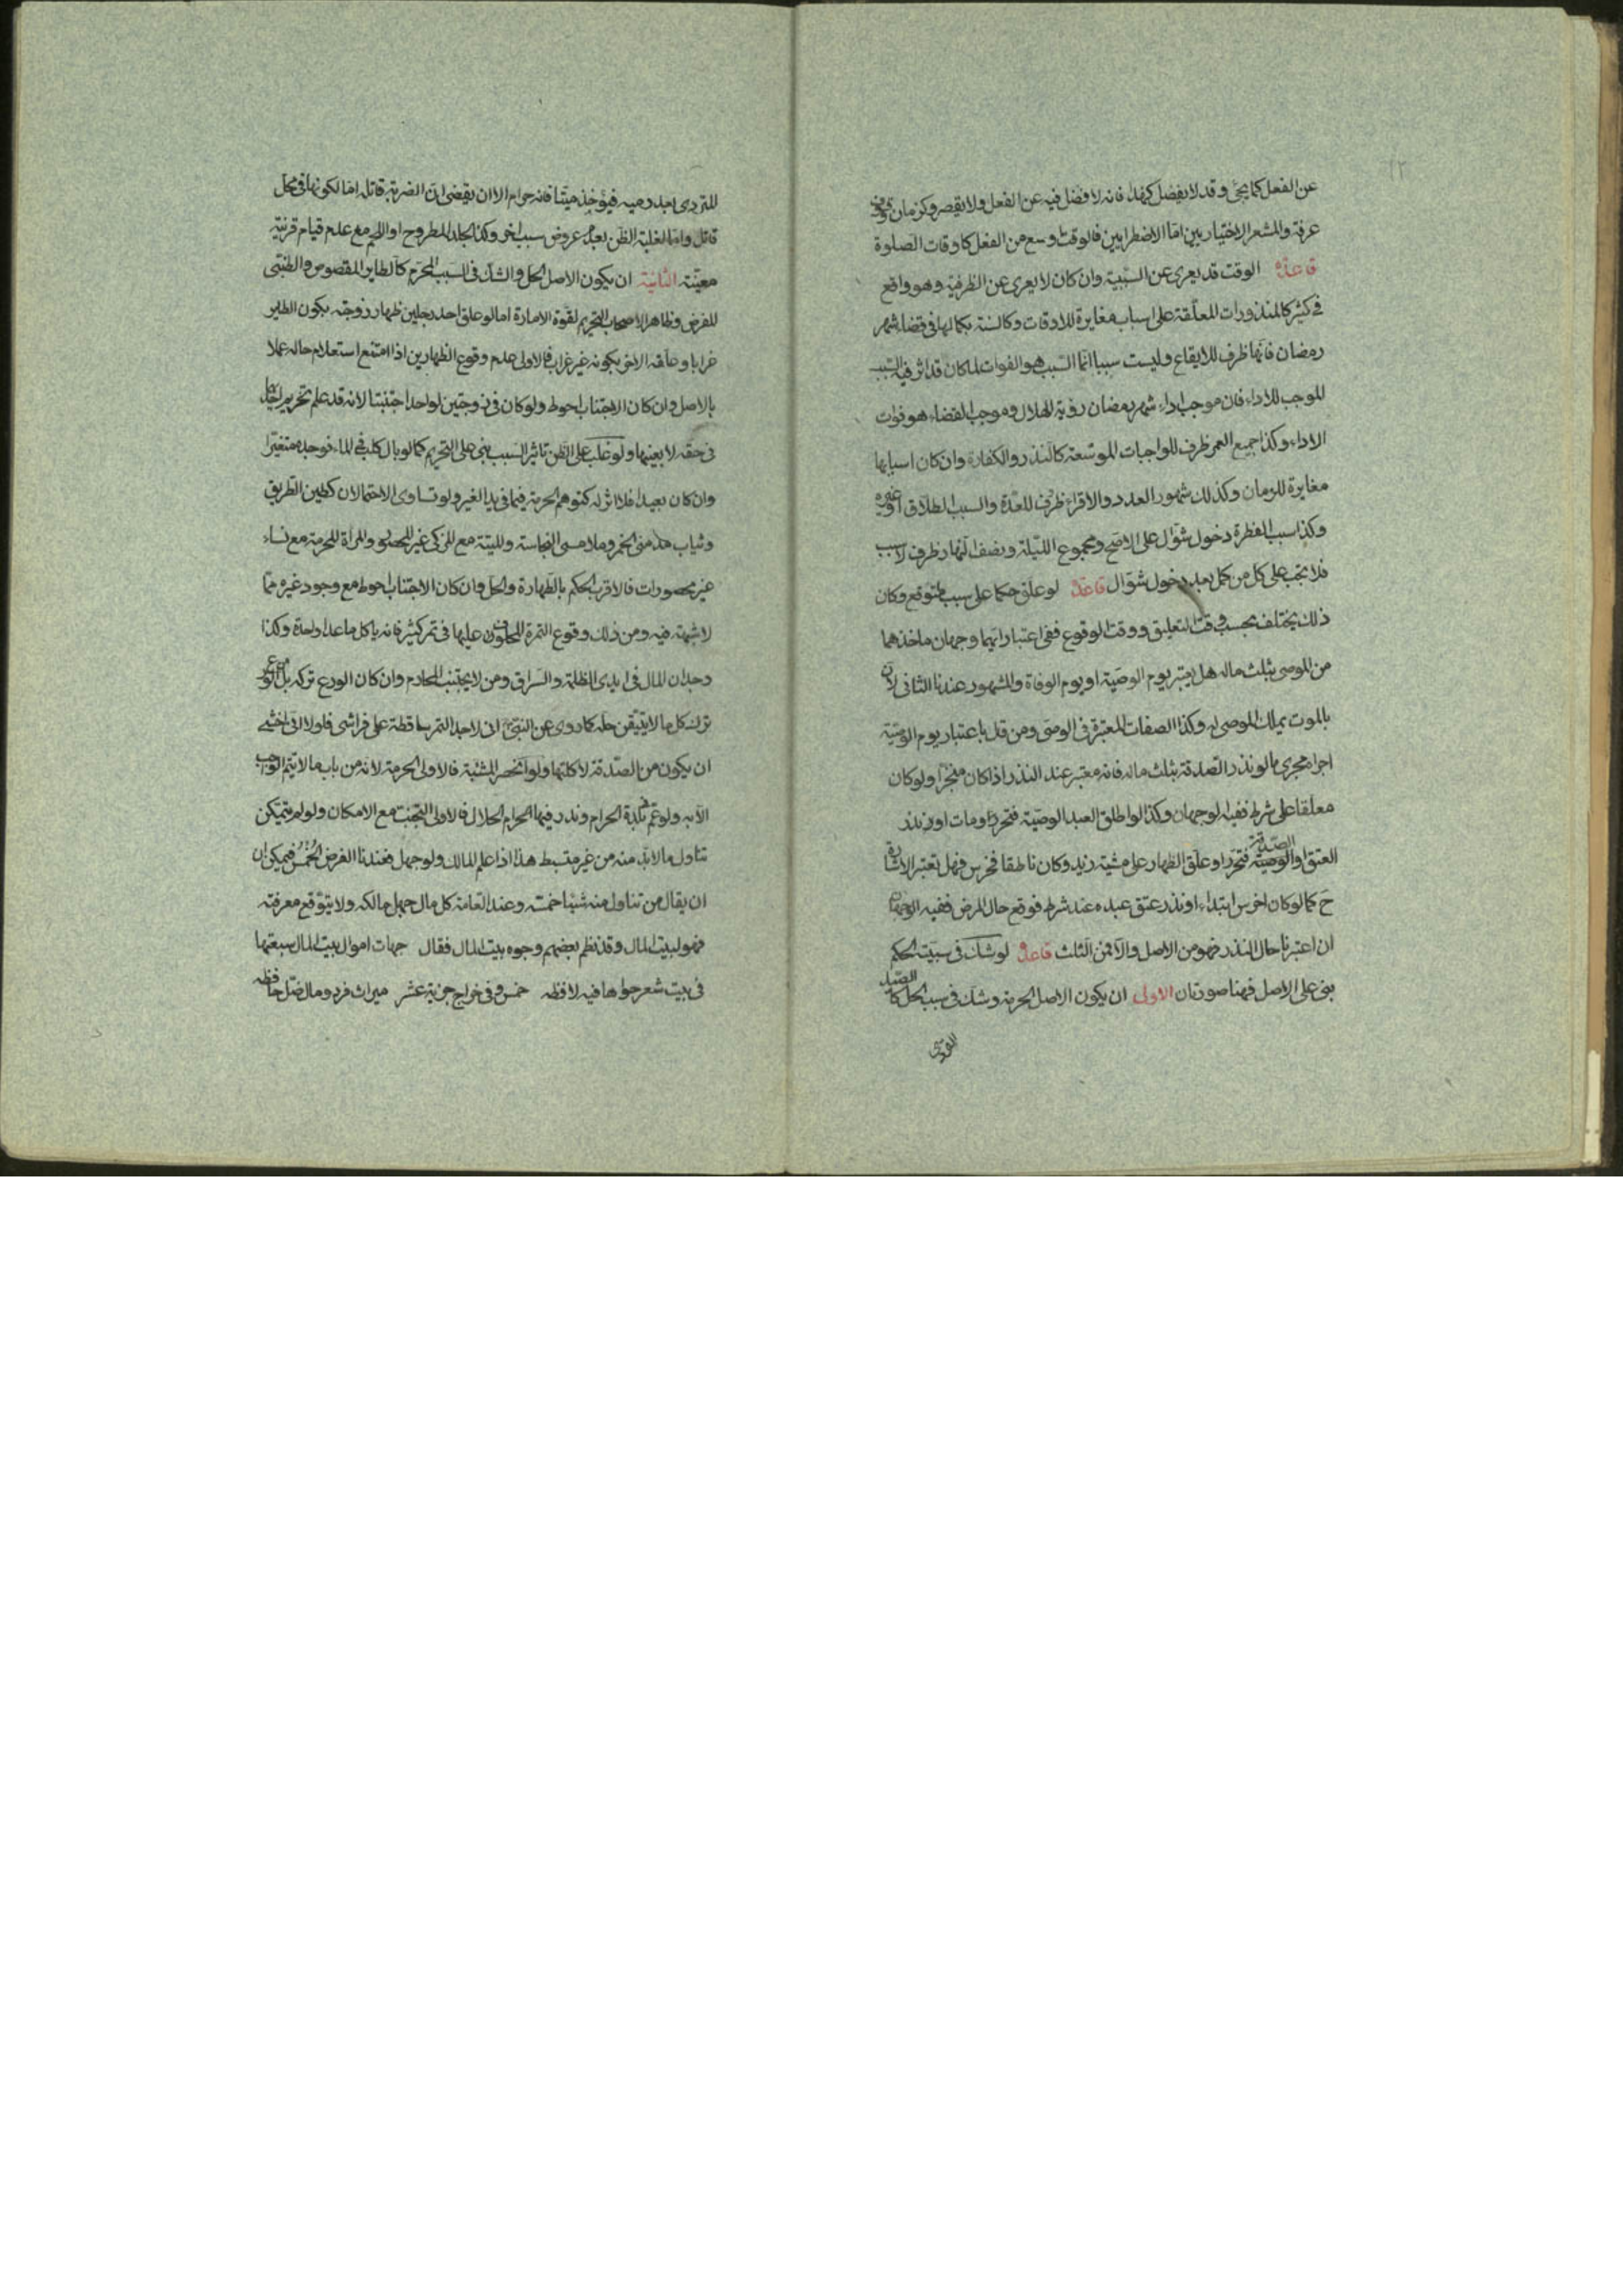 ١٢
عن الفعل كما يجئ وقد لا يفضل كهذا فانه لا فضل فيه عن الفعل ولا يقصر وكزمان
عرفة والمشعر الاختياريين امّا الاضطرابيين فالوقت اوسع من الفعل كاوقات الصلوة
قاعدة الوقت قد يعرى عن السّببية وان كان لا يعرى عن الظرفية وهو واقع
فى كثير كالمنذورات المعلّقة على اسباب مغايرة للاوقات وكالسنة بكمالها فى قضاء شهر
رمضان فانّها ظرف للايقاع وليست سببا انّما السّبب هو الفوات لما كان قد اثر فيه السّبب
الموجب للاداء فان موجب اداء شهر رمضان رؤية الهلال وموجب القضاء هو فوات
الاداء وكذا جميع العمر ظرف للواجبات الموسّعة كالنذر والكفارة وان كان اسبابها
مغايرة للزمان وكذلك شهور العدد والاقراء ظرف للعدّة والسبب الطلاق او غيره
وكذا سبب الفطرة دخول شوّال على الاصحّ ومجموع اللّيلة ونصف النّهار ظرف لا سبب
فلا تجب على كل من كمل بعد دخول شوّال قاعدة لو علّق حكما على سبب متوقع وكان
ذلك يختلف بحسب وقت التعليق ووقت الوقوع ففى اعتبار ايّهما وجهان ماخذهما
من الموصى بثلث ماله هل يعتبر يوم الوصيّة او يوم الوفاة والمشهور عندنا الثانى لان
بالموت يملك الموصى له وكذا الصفات المعتبرة فى الوصّى ومن قال باعتبار يوم الوصيّة
اجراه مجرى ما لو نذر الصّدقة بثلث ماله فانه معتبر عند النذر اذا كان منجّزا ولو كان
معلّقا على شرط ففيه الوجهان وكذا لو اطلق العبد الوصيّة فتحرّر ومات او نذر
العتق او الوصيّة الصّدقة فتحرّر او علّق الظهار على مشية زيد وكان ناطقا فخرس فهل تعتبر الاشارة
ح كما لو كان اخرس ابتداء او نذر عتق عبده عند شرط فوقع حال المرض ففيه الوجهان
ان اعتبرنا حال النذر فهو من الاصل والّا فمن الثلث قاعدة لو شك فى سببيّة الحكم
بنى على الاصل فهنا صورتان الاولى ان يكون الاصل الحرمة وشك فى سبب الحل كالصّيد
المتردى بعد رميه فيؤخذ ميّتا فانه حرام الا ان يقضى بان الضربة قاتلة امّا لكونها فى محل
قاتل وامّا لغلبة الظّن بعدم عروض سبب اخر وكذا الجلد المطروح او اللحم مع عدم قيام قرينة
معيّنة الثانية ان يكون الاصل الحل والشك فى السّبب المحرّم كالطاير المقصوص والظبى
للفرض وظاهر الاصحاب التحريم لقوّة الامارة امّا لو علّق احد رجلين ظهار زوجته بكون الطاير
غرابا وعلقه الاخر بكونه غير غراب فالاولى عدم وقوع الظهارين اذا امتنع استعلام حاله عملا
بالاصل وان كان الاجتناب احوط ولو كان فى زوجتين لواحد اجتنبتا لانه قد علم تحريم احداهما
فى حقه لا بعينها ولو غلب على الظّن تاثير السّبب بنى على التحريم كما لو بال كلب فى الماء فوجده متغيّرا
وان كان بعيدا فلا اثر له كتوهم الحرمة فيما فى يد الغير ولو تساوى الاحتمالان كطين الطريق
وثياب مدمنى الخمر وملامسى النجاسة والميتة مع المزكى غير المحصور والمراة المحرمة مع نساء
غير محصورات فالاقرب الحكم بالطهارة والحل وان كان الاجتناب احوط مع وجود غيره ممّا
لا شبهة فيه ومن ذلك وقوع التمرة المحلوف عليها فى تمر كثير فانه ياكل ما عدا واحدة وكذا
وجدان المال فى ايدى الظلمة والسّراق ومن لا يجتنب المحارم وان كان الورع تركه بل الورع
ترك كل ما لا يتيقن حلّه كما روى عن النبى ص انى لاجد التمر ساقطة على فراشى فلولا انّى اخشى
ان يكون من الصّدقة لاكلتها ولو انحصر المشتبه فالاولى الحرمة لانه من باب ما لا يتم الواجب
الّا به ولو عمّ بلدة الحرام وندر فيها الحلال فالاولى التجنّب مع الامكان ولو لم يتمكن
تناول ما لا بدّ منه من غير متبسط هذا اذا علم المالك ولو جهل فعندنا الفرض الخمس فيمكن ان
ان يقال من تناول منه شيئا خمّسه وعند العامّة كل مال جهل مالكه ولا يتوقّع معرفته
فهو لبيت المال وقد نظم بعضهم وجوه بيت المال فقال جهات اموال بيت المال سبعتها
فى بيت شعر حواها فيه لافظه خمس وفى خراج جزية عشر ميراث فرد ومال ضلّ حافظه